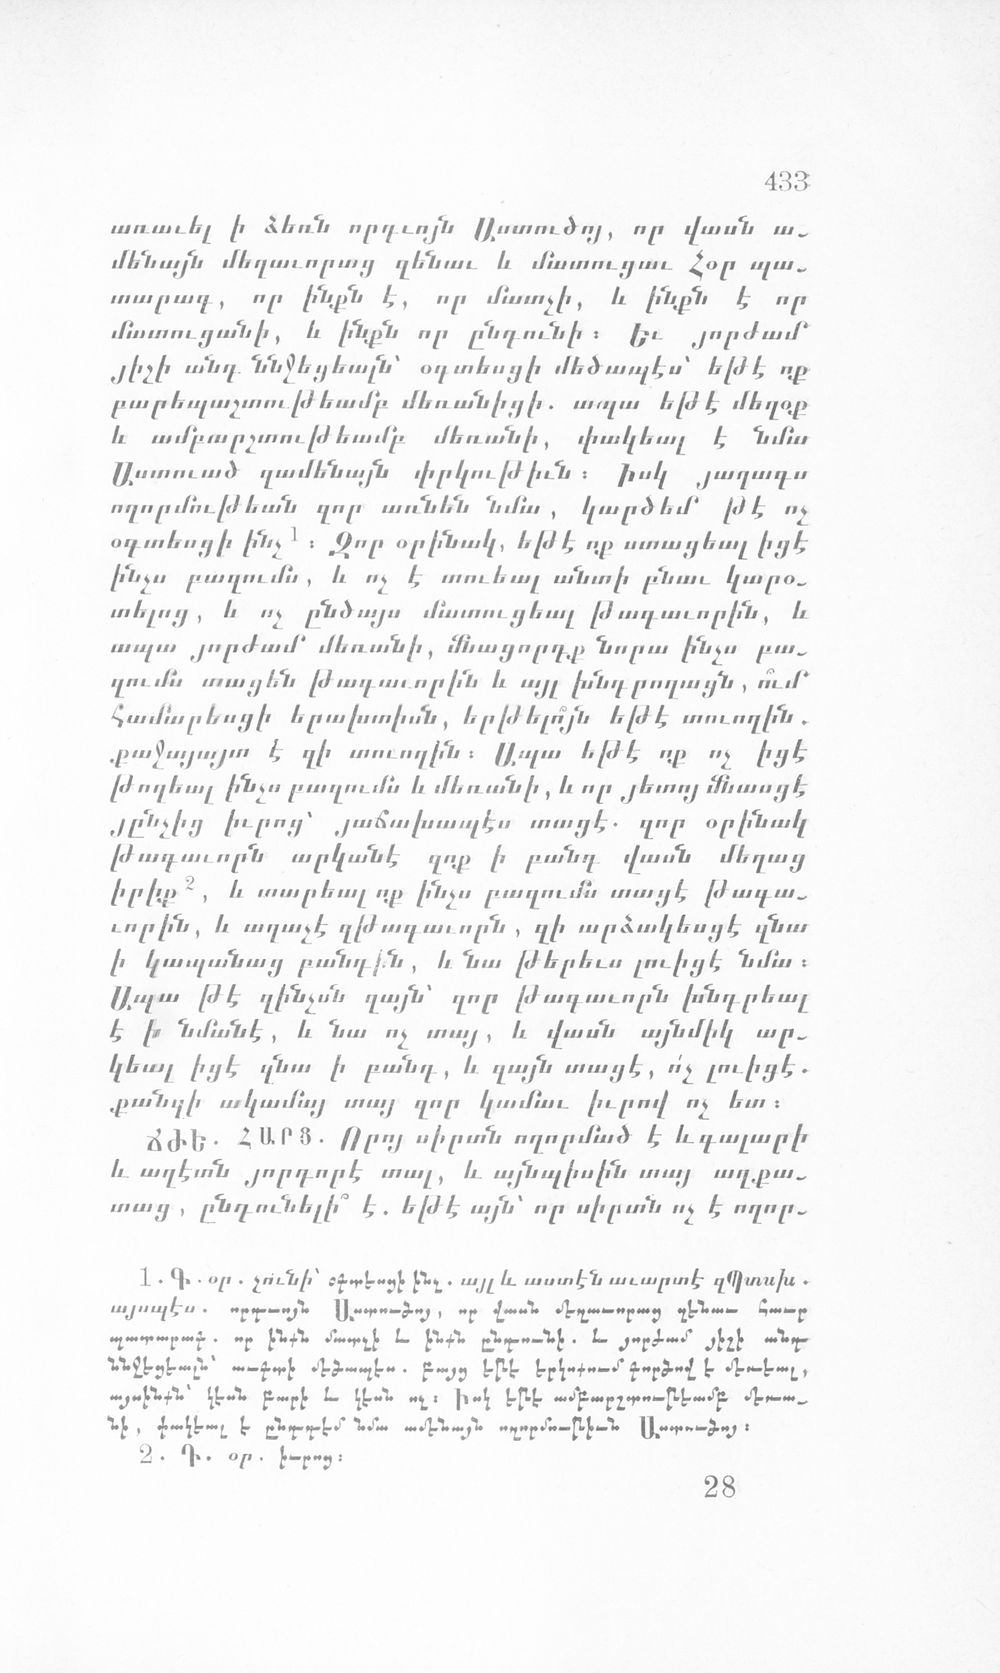 433
առաւել ի ձեռն որդւոյն Աստուծոյ, որ վասն ա-
մենայն մեղաւորաց զենաւ և մատուցաւ Հօր պա-
տարագ, որ ինքն է, որ մատչի, և ինքն է որ
մատուցանի, և ինքն որ ընդունի։ Եւ յորժամ
յիշի անդ ննջեցեալն՝ օգտեսցի մեծապէս՝ եթէ ոք
բարեպաշտութեամբ մեռանիցի. ապա եթէ մեղօք
և ամբարշտութեամբ մեռանի, փակեալ է նմա
Աստուած զամենայն փրկութիւն։ Իսկ յաղագս
ողորմութեան զոր առնեն նմա, կարծեմ թէ ոչ
օգտեսցի ինչ 1։ Զոր օրինակ, եթէ ոք ստացեալ իցէ
ինչս բազումս, և ոչ է տուեալ անտի բնաւ կարօ-
տելոց, և ոչ ընծայս մատուցեալ թագաւորին, և
ապա յորժամ մեռանի, մնացորդք նորա ինչս բա-
զումս տացեն թագաւորին և այլ խնդրողացն, ո՞ւմ
համարեսցի երախտիսն, երթելո՞յն եթէ տուողին.
քաջայայտ է զի տուողին։ Ապա եթէ ոք ոչ իցէ
թողեալ ինչս բազումս և մեռանի, և որ յետոյ մնասցէ
յընչից իւրոց՝ յաճախապէս տացէ. զոր օրինակ
թագաւորն արկանէ զոք ի բանդ վասն մեղաց
իրիք 2, և տարեալ ոք ինչս բազումս տացէ թագա-
ւորին, և աղաչէ զթագաւորն, զի արձակեսցէ զնա
ի կապանաց բանդին, և նա թերեւս լուիցէ նմա։
Ապա թէ զինչսն զայն՝ զոր թագաւորն խնդրեալ
է ի նմանէ, և նա ոչ տայ, և վասն այնմիկ ար-
կեալ իցէ զնա ի բանդ, և զայն տացէ, ո՛չ լուիցէ.
քանզի ակամայ տայ զոր կամաւ իւրով ոչ ետ։
ՃԺԵ. ՀԱՐՑ. Որոյ սիրտն ողորմած է և գալարի
և աղէտն յորդորէ տալ, և այնպիսին տայ աղքա-
տաց, ընդունելի՞ է. եթէ այն՝ որ սիրտն ոչ է ողոր-
1. Գ. օր. չունի՝ օգտեսցի ինչ. այլ և աստէն աւարտէ զՊտսխ.
այսպէս. որդւոյն Աստուծոյ, որ վասն մեղաւորաց զենաւ հաւր
պատարագ. որ ինքն մատչի և ինքն ընդունի. և յորժամ յիշի անդ
ննջեցեալն՝ աւգտի մեծապէս. բայց եթէ երկոքում գործով է մեռեալ,
այսինքն՝ կեսն բարի և կեսն ոչ։ Իսկ եթէ ամբարշտութեամբ մեռա-
նի, փակեալ է ընդդէմ նմա ամենայն ողորմութիւն Աստուծոյ։
2. Գ. օր. իւրոց։
28